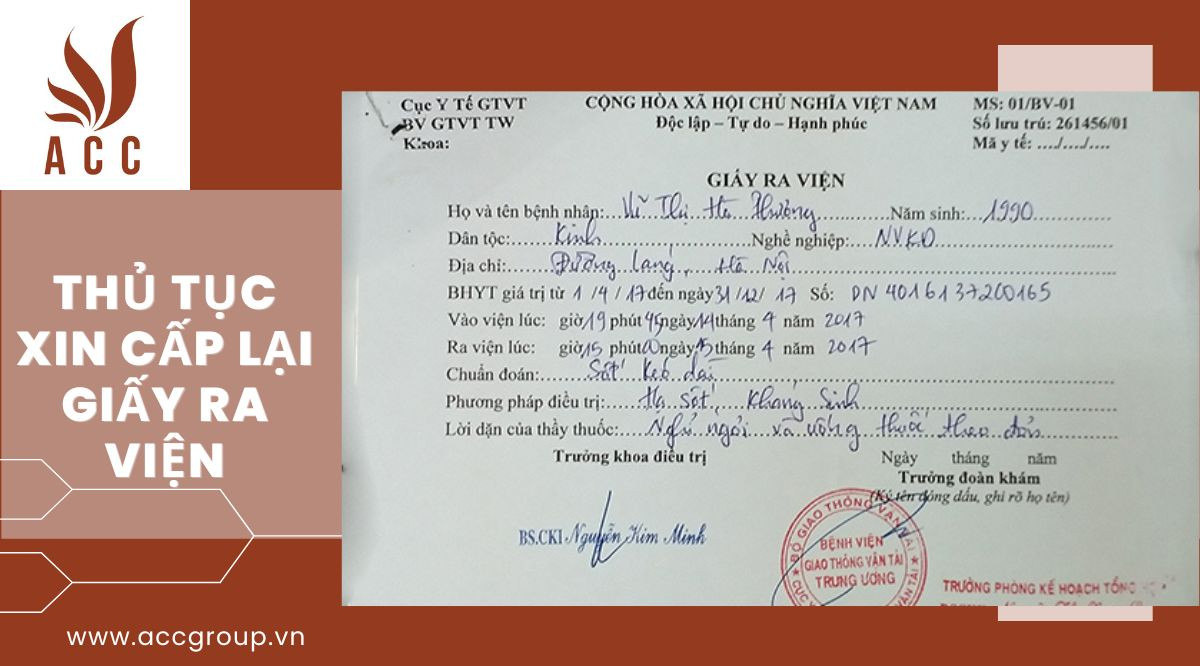 ACC
THỦ TỤC
XIN CẤP LẠI
GIẤY RA
VIỆN
www.accgroup.vn
Cục Y Tế GTVT
BV GTVT TW
Khoa:
CỘNG HÒA XÃ HỘI CHỦ NGHĨA VIỆT NAM
Độc lập – Tự do – Hạnh phúc
MS: 01/BV-01
Số lưu trú: 261456/01
Mã y tế: ..../..../....
GIẤY RA VIỆN
Họ và tên bệnh nhận: Vũ Thị Hà Phường Năm sinh: 1990
Dân tộc: Kinh Nghề nghiệp: NVKD
Địa chỉ: Đường Láng, Hà Nội
BHYT giá trị từ 1/4/17 đến ngày 31/12/17 Số: DN 4016137260165
Vào viện lúc: giờ 19 phút 45 ngày 14 tháng 4 năm 2017
Ra viện lúc: giờ 15 phút ngày 15 tháng 4 năm 2017
Chuẩn đoán: Sốt kéo dài
Phương pháp điều trị: Hạ sốt, kháng sinh
Lời dặn của thầy thuốc: Nghỉ ngơi và uống thuốc theo đơn
Trưởng khoa điều trị
Ngày tháng năm
Trưởng đoàn khám
(Ký tên đóng dấu, ghi rõ họ tên)
BS.CKI Nguyễn Kim Minh
BỘ GIAO THÔNG VẬN TẢI
BỆNH VIỆN
GIAO THÔNG VẬN TẢI
TRUNG ƯƠNG
TRƯỞNG PHÒNG KẾ HOẠCH TỔNG